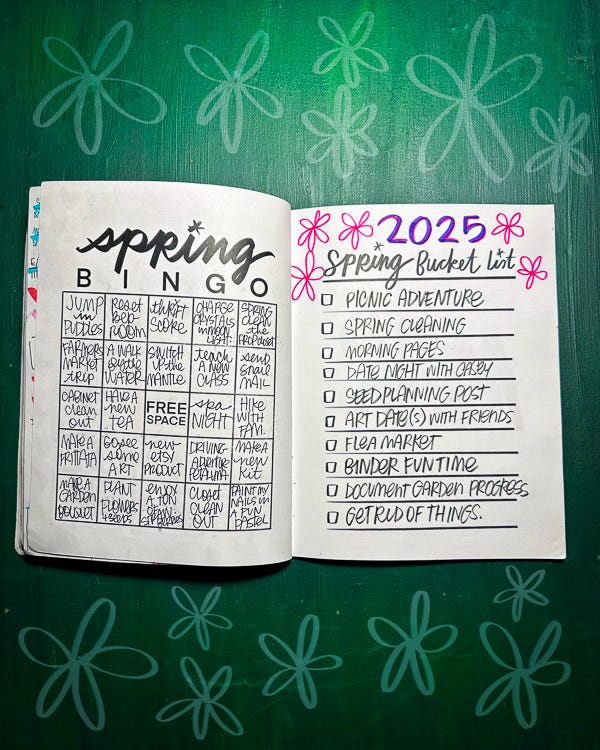 spring
BINGO
JUMP
in
PUDDLES
Reset
BED-
ROOM
thrift
SCORE
CHARGE
CRYSTALS
in moon
LIGHT
SPRING
CLEAN
the
PROP closet
FARMERS
MARKET
trip
A WALK
by the
WATER
SWITCH
UP the
MANTLE
teach
A NEW
CLASS
send
snail
MAIL
CABINET
clean
out
HAVE A
new
TEA
FREE
SPACE
spa
NIGHT
HIKE
WITH
FAM.
MAKE A
FRITTATA
GO see
some
ART
new
etsy
PRODUCT
DRIVING
ADVENTURE
PETALUMA
MAKE A
new
Kit
MAKE A
GARDEN
BOUQUET
PLANT
FLOWERS
+ SEEDS
enjoy
A TON
OF
CLOSET
CLEAN
OUT
PAINT MY
NAILS in
A FUN
PASTEL
2025
SPRING Bucket List
PICNIC ADVENTURE
SPRING CLEANING
MORNING PAGES
DATE NIGHT WITH CASEY
SEED PLANNING POST
ART DATE(S) WITH FRIENDS
FLEA MARKET
BINDER FUN TIME
DOCUMENT GARDEN PROGRESS
GET RID OF THINGS.